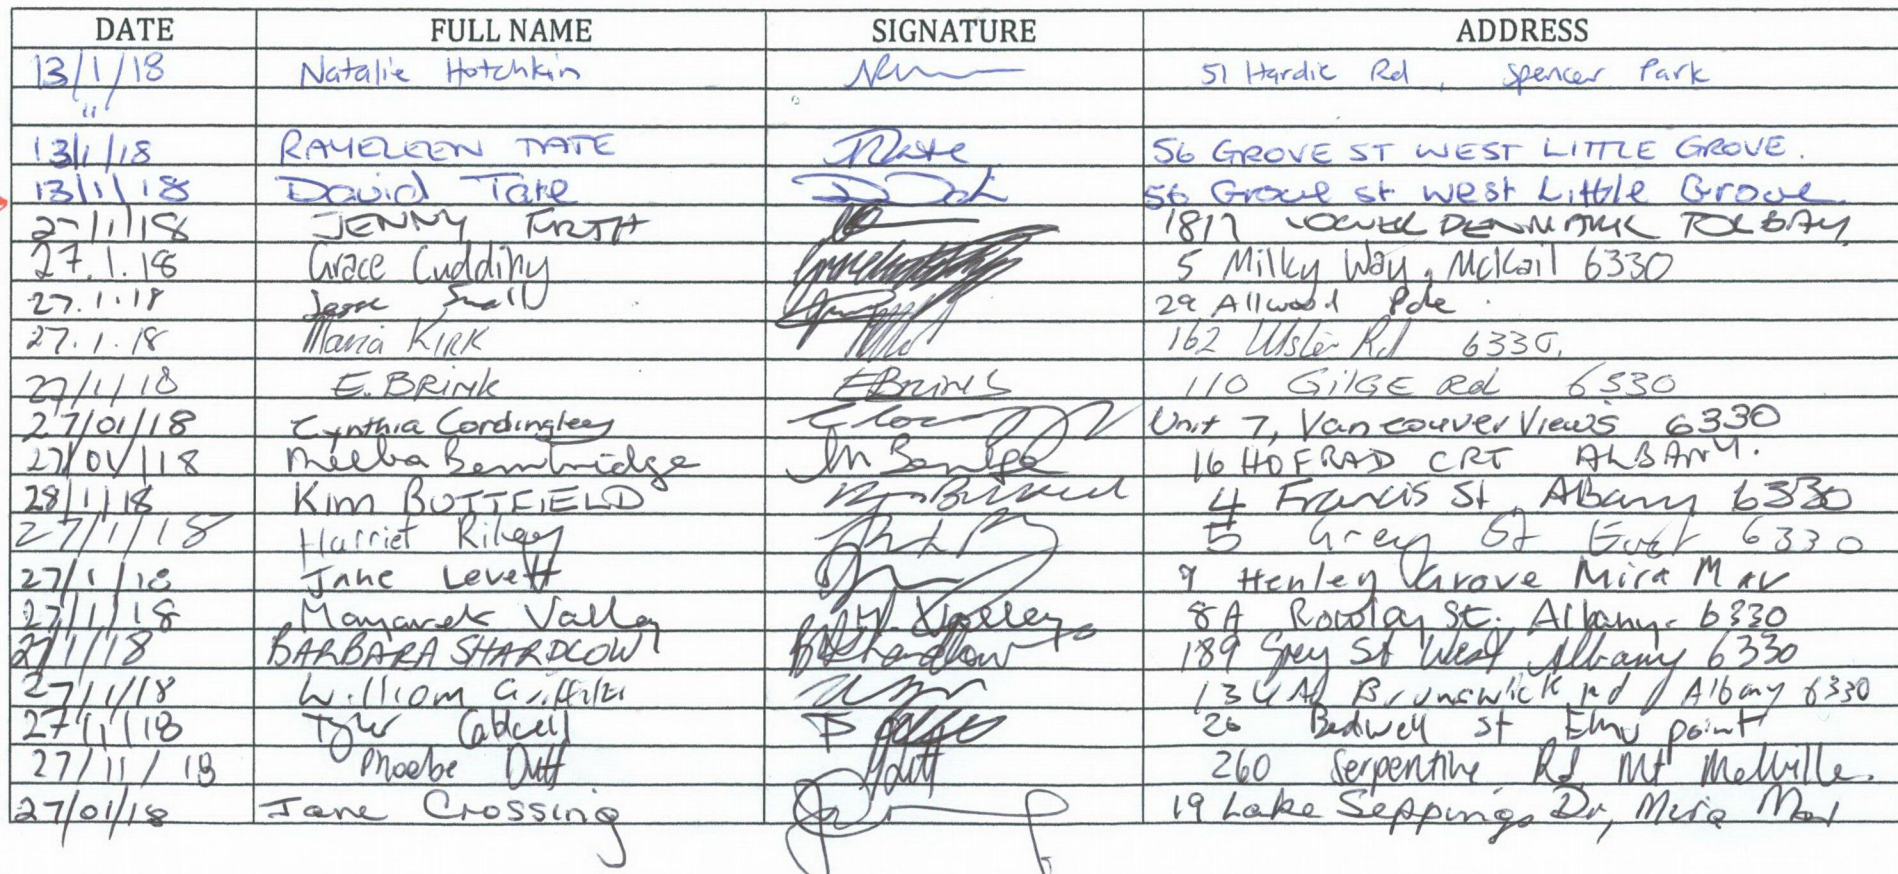 DATE FULL NAME SIGNATURE ADDRESS
13/1/18 Natalie Hotchkin 51 Hardie Rd, Spencer Park
"
13/1/18 RAYELEEN TATE 56 GROVE ST WEST LITTLE GROVE.
13/1/18 David Tate 56 Grove st west Little Grove
27/1/18 JENNY FIRTH 1817 LOWER DENMARK
27.1.18 Grace Cuddihy 5 Milky Way, McKail 6330
27.1.18 Jesse Small 29 Allwood Pde.
27.1.18 Maria KIRK 162 Ulster Rd 6330.
27/1/18 E. BRINK 110 Rd 6330
27/01/18 Cynthia Cordingley Unit 7, Vancouver Views 6330
27/01/18 Melba 16 CRT ALBANY.
28/1/18 Kim BUTTFIELD 4 Francis St, Albany 6330
27/1/18 Harriet Riley 5 Grey St East 6330
27/1/18 Jane Levett 9 Henley Grove Mira Mar
27/1/18 Margaret Valley M. Valley 8A Rowley St. Albany. 6330
27/1/18 BARBARA SHARDLOW B Shardlow 189 Grey St West Albany 6330
27/1/18 William Griffiths Brunswick rd Albany 6330
27/1/18 Tyler 26 Bedwell st Emu point
27/11/18 Phoebe Dutt 260 Serpentine Rd Mt Melville.
27/01/18 Jane Crossing 19 Lake Seppings Dr, Mira Mar